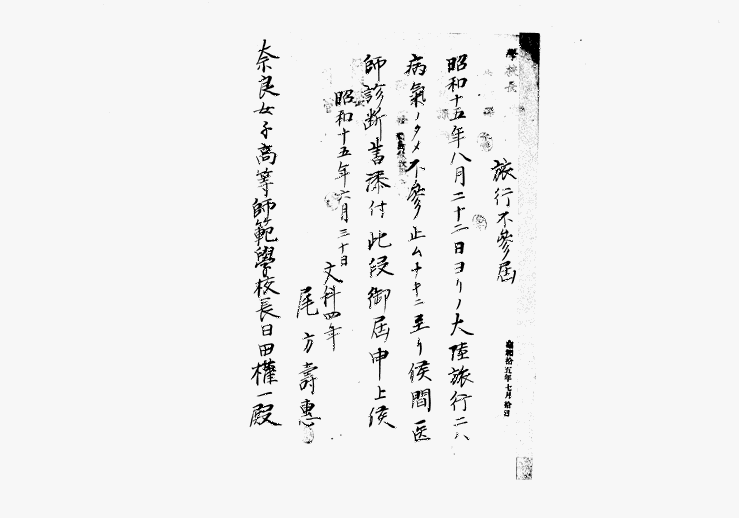 學校長
旅行不參屆
昭和十五年八月二十二日ヨリノ大陸旅行ニハ
病氣ノタメ不參止ムナキニ至リ候間医
師診断書添付此段御屆申上候
昭和十五年六月三十日
文科四年
尾方壽惠
奈良女子高等師範學校長日田權一殿
昭和拾五年七月拾日